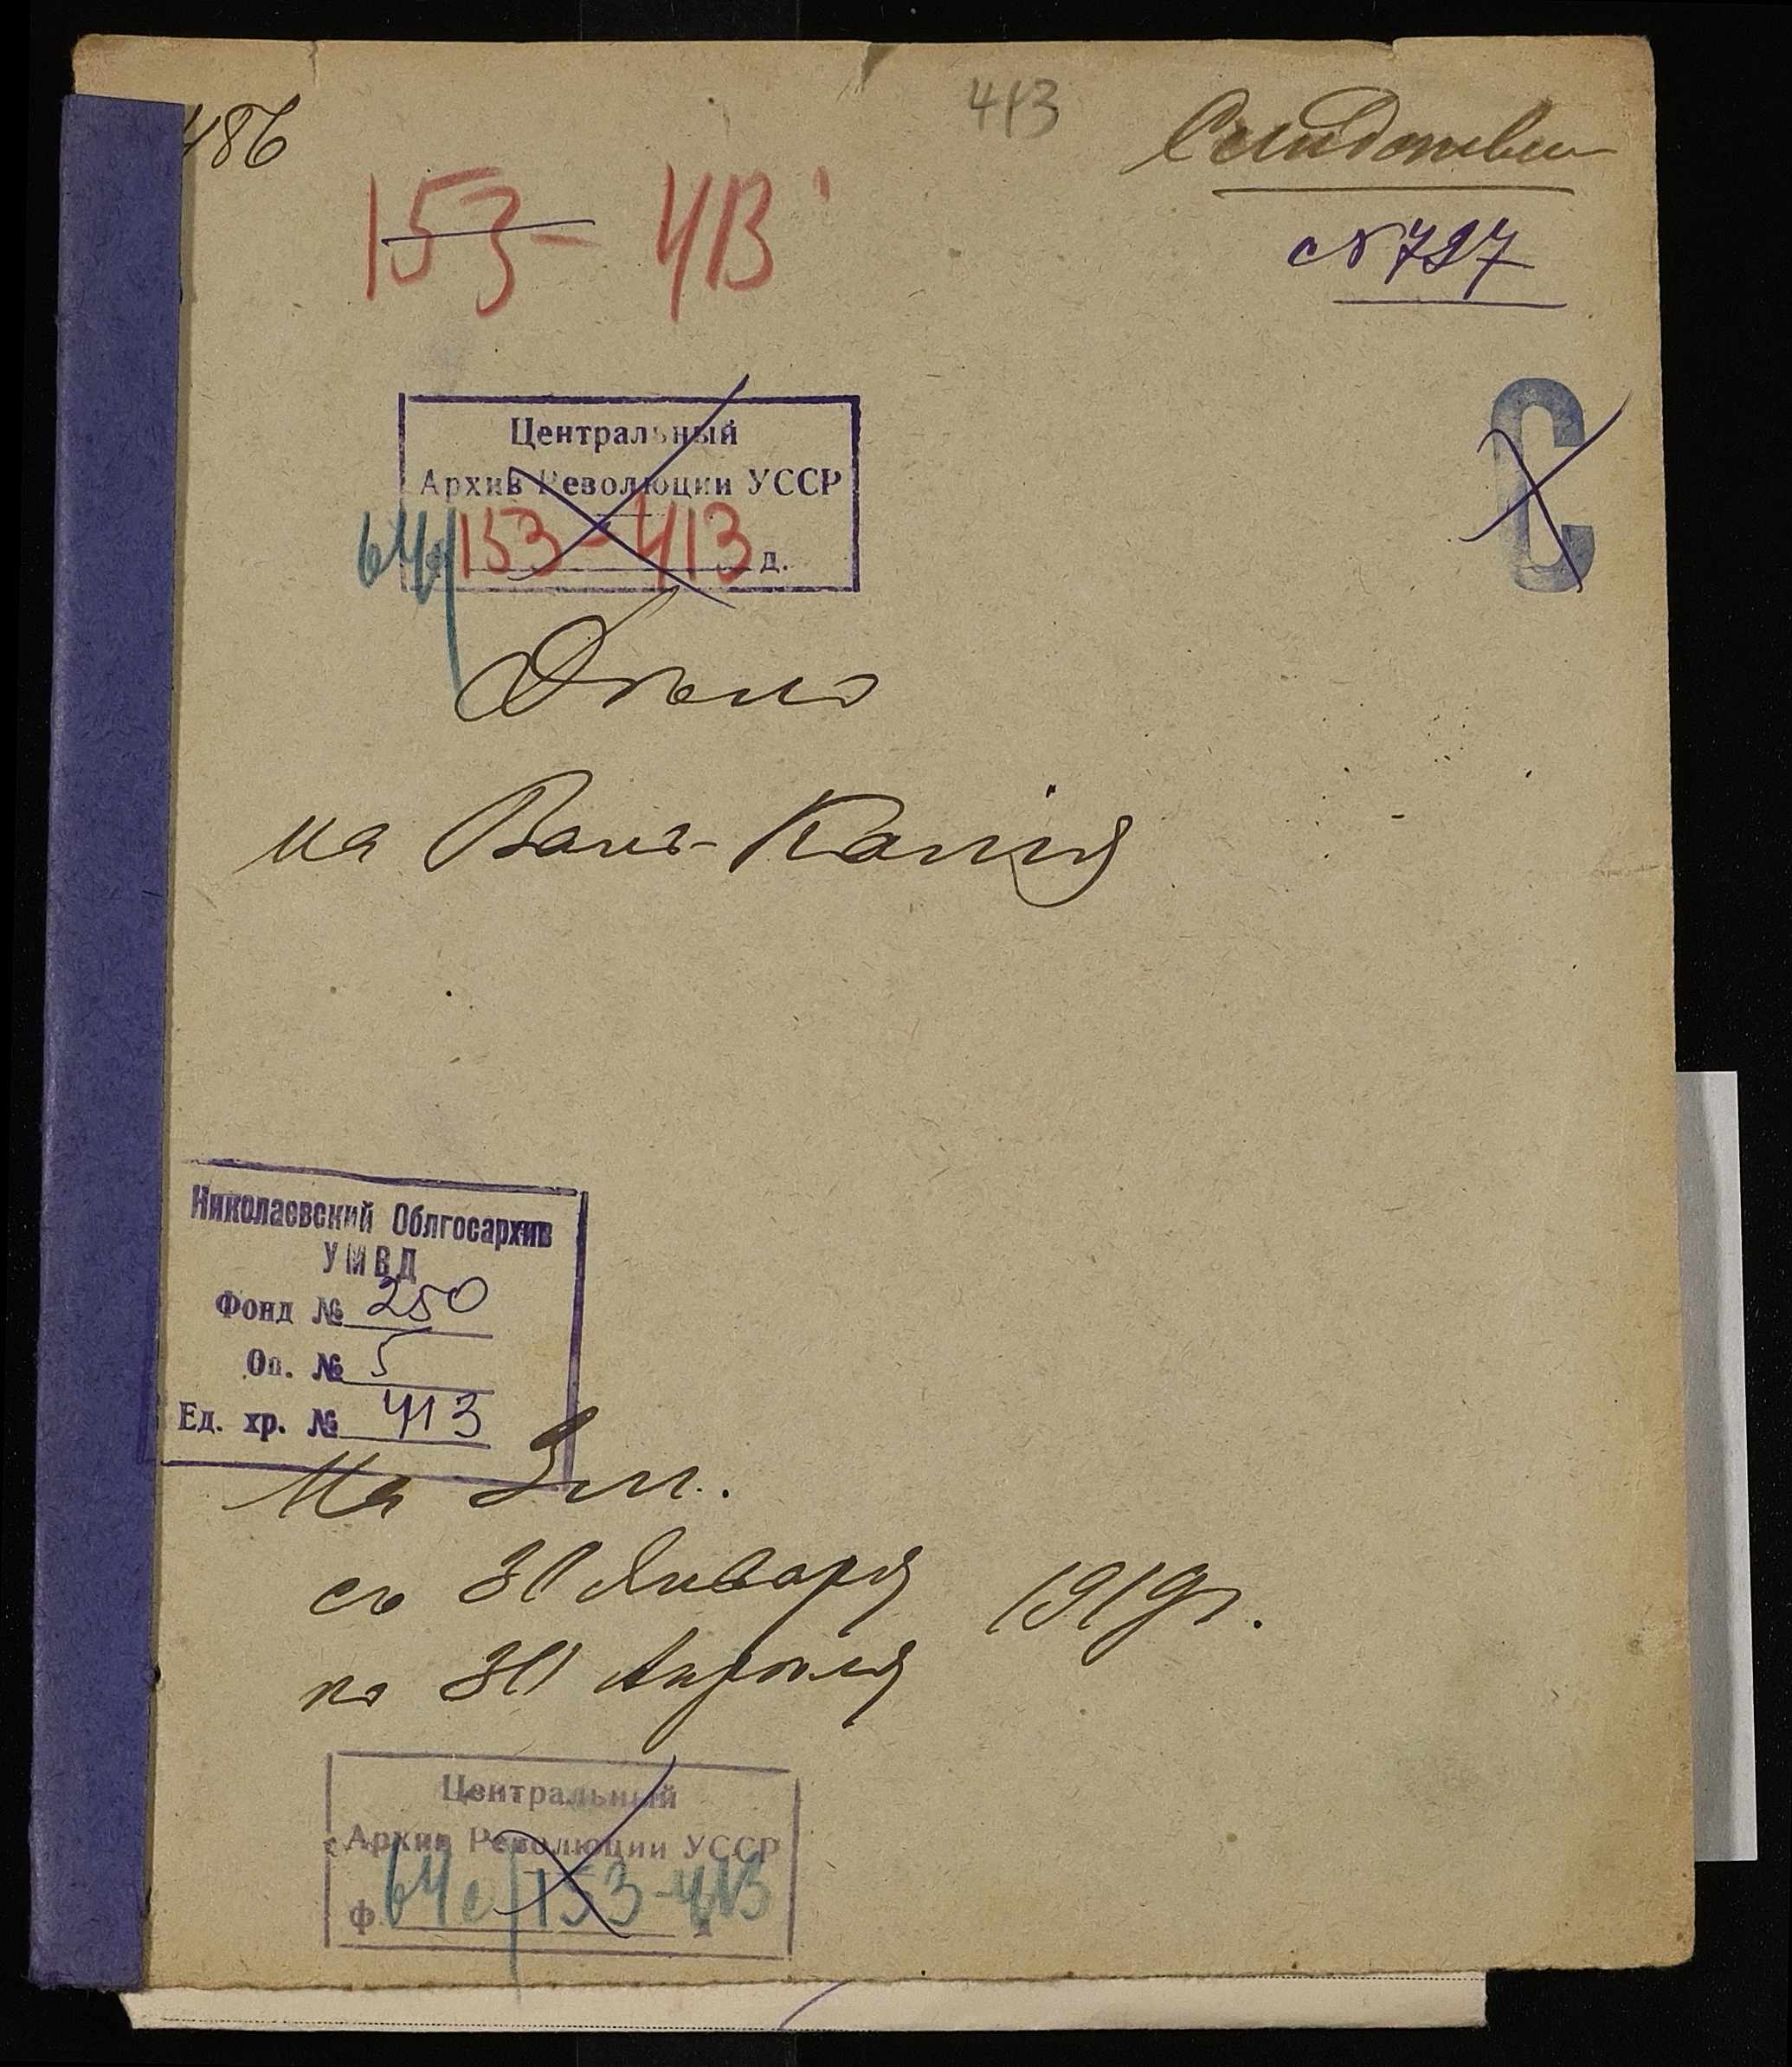 486
413
153 - 413
№ 727
С
Центральный
Архив Революции УССР
64с/153-413 д.
Дѣло
на Ванъ-Капія
Николаевский Облгосархив
УМВД
Фонд № 250
Оп. № 5
Ед. хр. № 413
На 3 лл.
съ 30 Января
1919 г.
по 30 Апрѣля
Центральный
Архив Революции УССР
ф. 64с/153-413